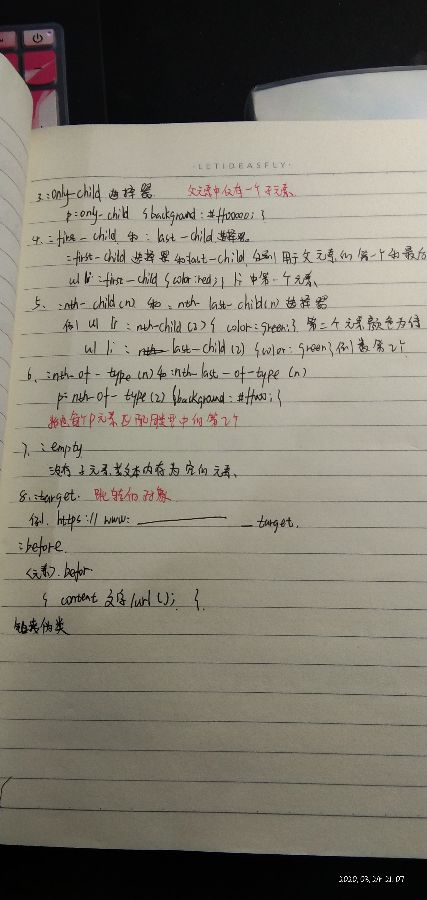 ·LETIDEASFLY·
3. :only-child 选择器 父元素中仅有一个子元素
p:only-child {background:#ff0000;}
4. :firse-child 和 :last-child 选择器
:first-child 选择器和last-child 分别用于父元素的第一个和最后
ul li:first-child {color:red;} li中第一个元素、
5. :nth-child(n) 和:nth-last-child(n) 选择器
例 ul li:nth-child(2){color:green;} 第二个元素颜色为绿
ul li: last-child(2) {color:green} 倒数第2个
6. :nth-of-type(n)和:nth-last-of-type(n)
p:nth-of-type(2) {background:#ff0000;}
每个p元素匹配同类型中的第2个
7. :empty
没有子元素或文本内容为空的元素、
8. :target. 跳转的对象
例. https://www. target.
:before.
<元素>.befor.
{content 文字/url();}.
链接伪类
2020.03.24 21:07